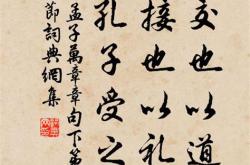 交也以道
接也以礼
孔子受之
孟子萬章章句下第
節詞典網集